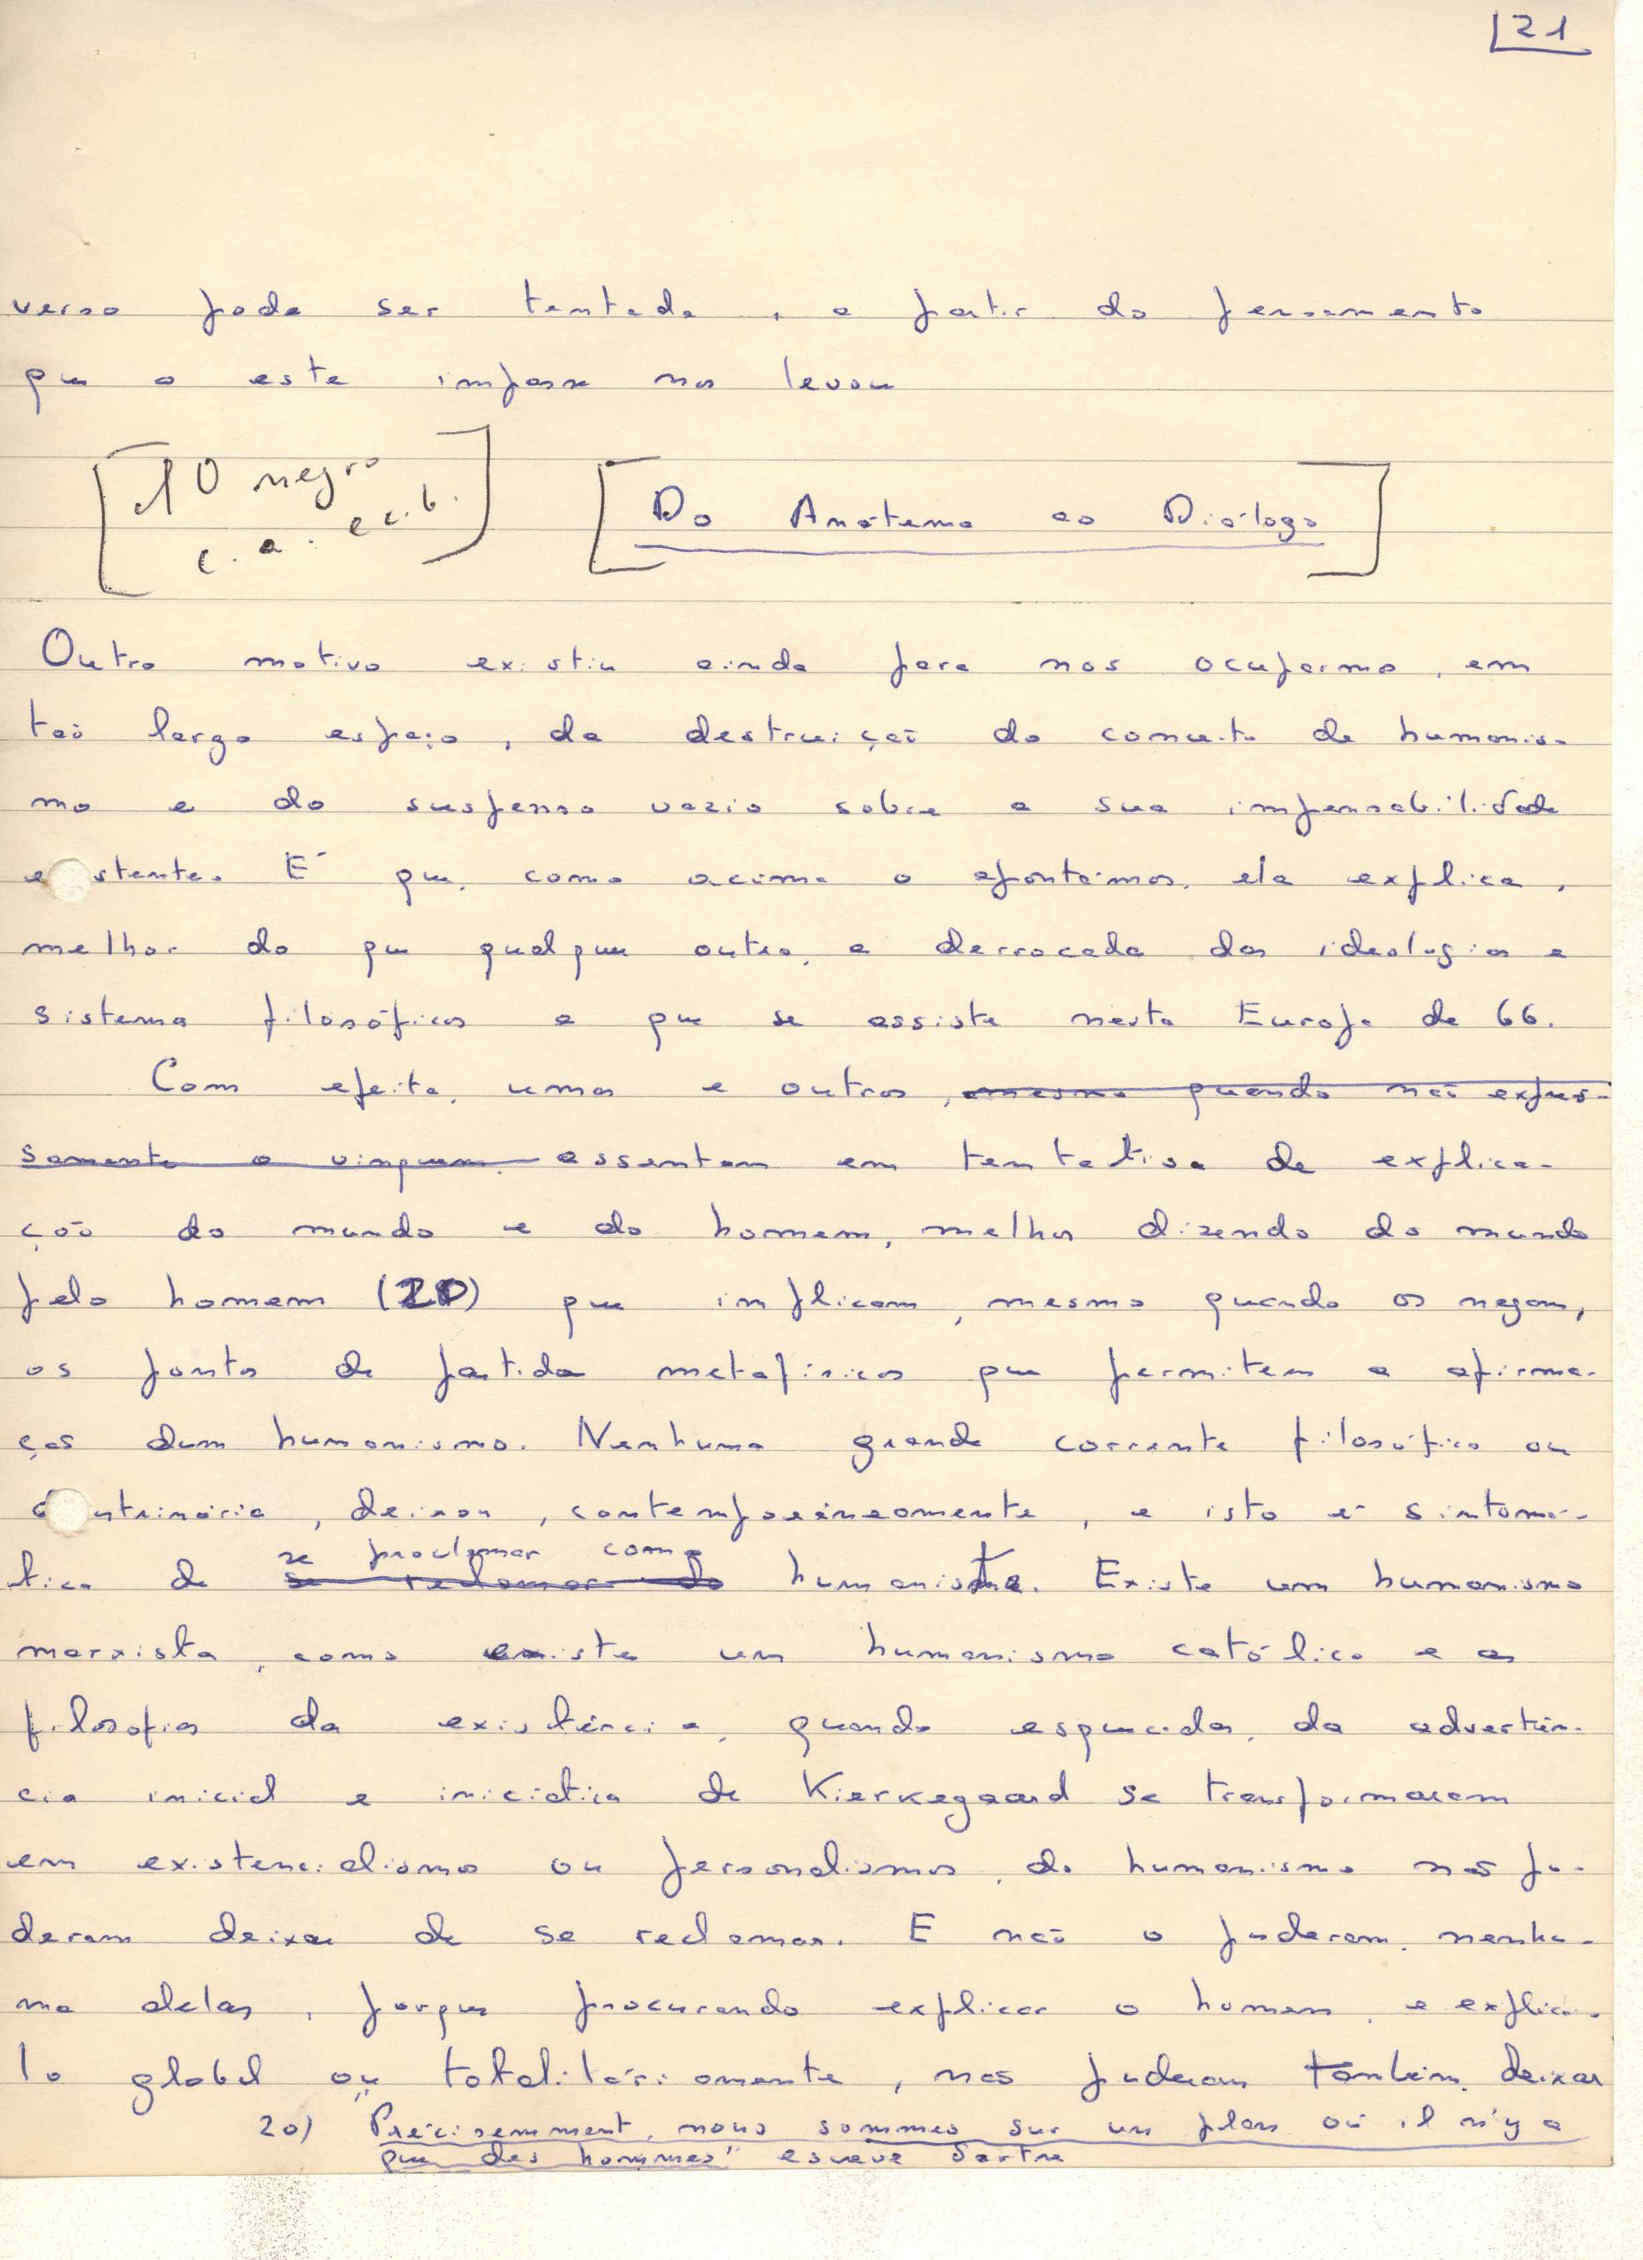 21
verso pode ser tentada, a partir do pensamento
que a este impasse nos levou
10 negro
c. a. e c. b.
Do Anátema ao Diálogo
Outro motivo existiu ainda para nos ocuparmos, em
tão largo espaço, da destruição do conceito de humanis-
mo e do suspenso vazio sobre a sua impensabilidade
e stente. É que, como acima o apontámos, ela explica,
melhor do que qualquer outra, a derrocada das ideologias e
sistemas filosóficos a que se assiste nesta Europa de 66.
Com efeito, umas e outros, mesmo quando não expres-
samente o vinquem, assentam em tentativa de explica-
ção do mundo e do homem, melhor dizendo do mundo
pelo homem (20) que implicam, mesmo quando os negam,
os pontos de partida metafísicos que permitem a afirma-
ção dum humanismo. Nenhuma grande corrente filosófica ou
d utrinária, deixou, contemporâneamente, e isto é sintomá-
tico de se reclamar do se proclamar como humanista. Existe um humanismo
marxista, como existe um humanismo católico e as
filosofias da existência, quando esquecidas da advertên-
cia inicial e iniciática de Kierkegaard se transformaram
em existencialismo ou personalismos, do humanismo não pu-
deram deixar de se reclamar. E não o puderam, nenhu-
ma delas, porque procurando explicar o homem, e explicá-
lo global ou totalitáriamente, não puderam também deixar
20) Précisemment, nous sommes sur un plan où il n'y a
que des hommes" escreve Sartre